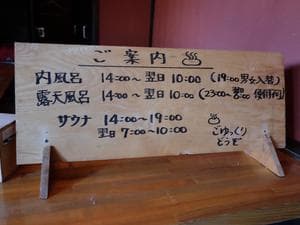 ご案内 ♨
内風呂 14:00～翌日10:00 (19:00男女入替)
露天風呂 14:00～翌日10:00 (23:00～
サウナ 14:00～19:00
翌日7:00～10:00
♨
ごゆっくり
どうぞ